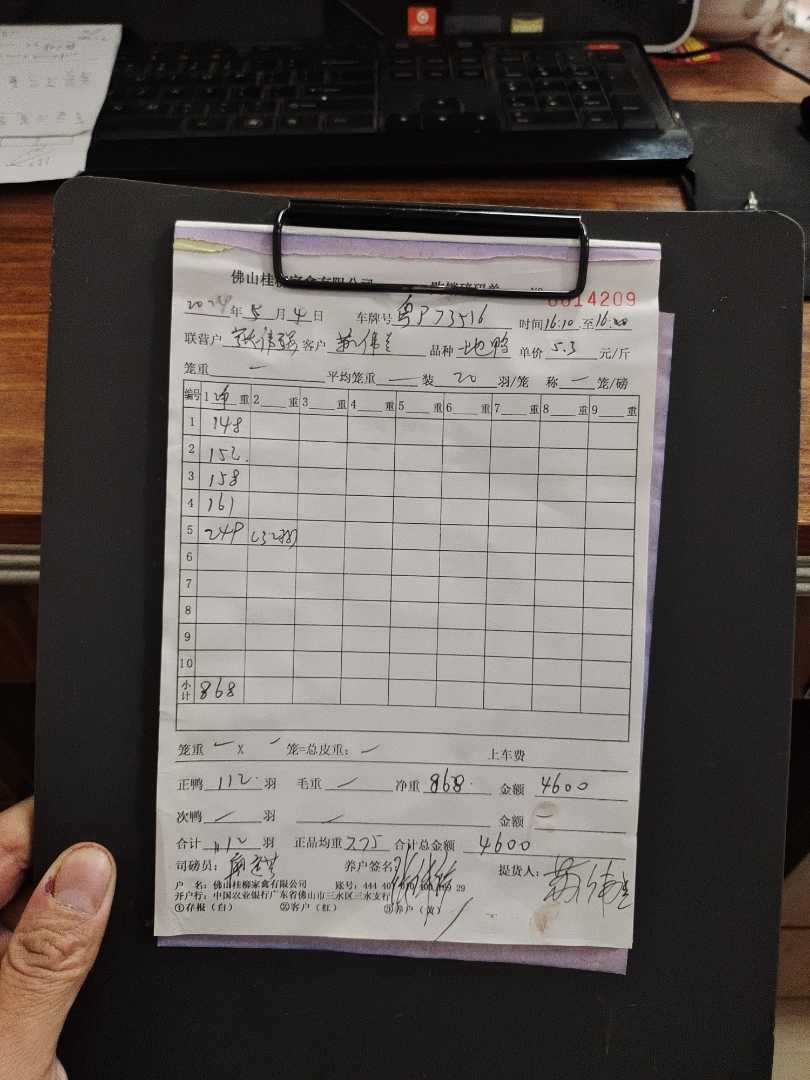 佛山桂柳家禽有限公司
0014209
年5月4日 车牌号 粤P73516 时间16:10至16:20
联营户 客户 黄伟 品种 土地鸭 单价 5.3 元/斤
笼重 一 平均笼重 一 装 20 羽/笼 称 一 笼/磅
编号 1 净 重 2 重 3 重 4 重 5 重 6 重 7 重 8 重 9 重
1 148
2 152
3 158
4 161
5 249 (32羽)
6
7
8
9
10
小计 868
笼重 一 X 一 笼=总皮重: 一 上车费
正鸭 112 羽 毛重 一 净重 868 金额 4600
次鸭 一 羽 一 金额 一
合计 112 羽 正品均重 7.75 合计总金额 4600
司磅员: 养户签名: 提货人:
户 名: 佛山桂柳家禽有限公司 账号: 444 29
开户行: 中国农业银行广东省佛山市三水区三水支行
①存根(白) ②客户(红) ③养户(黄)